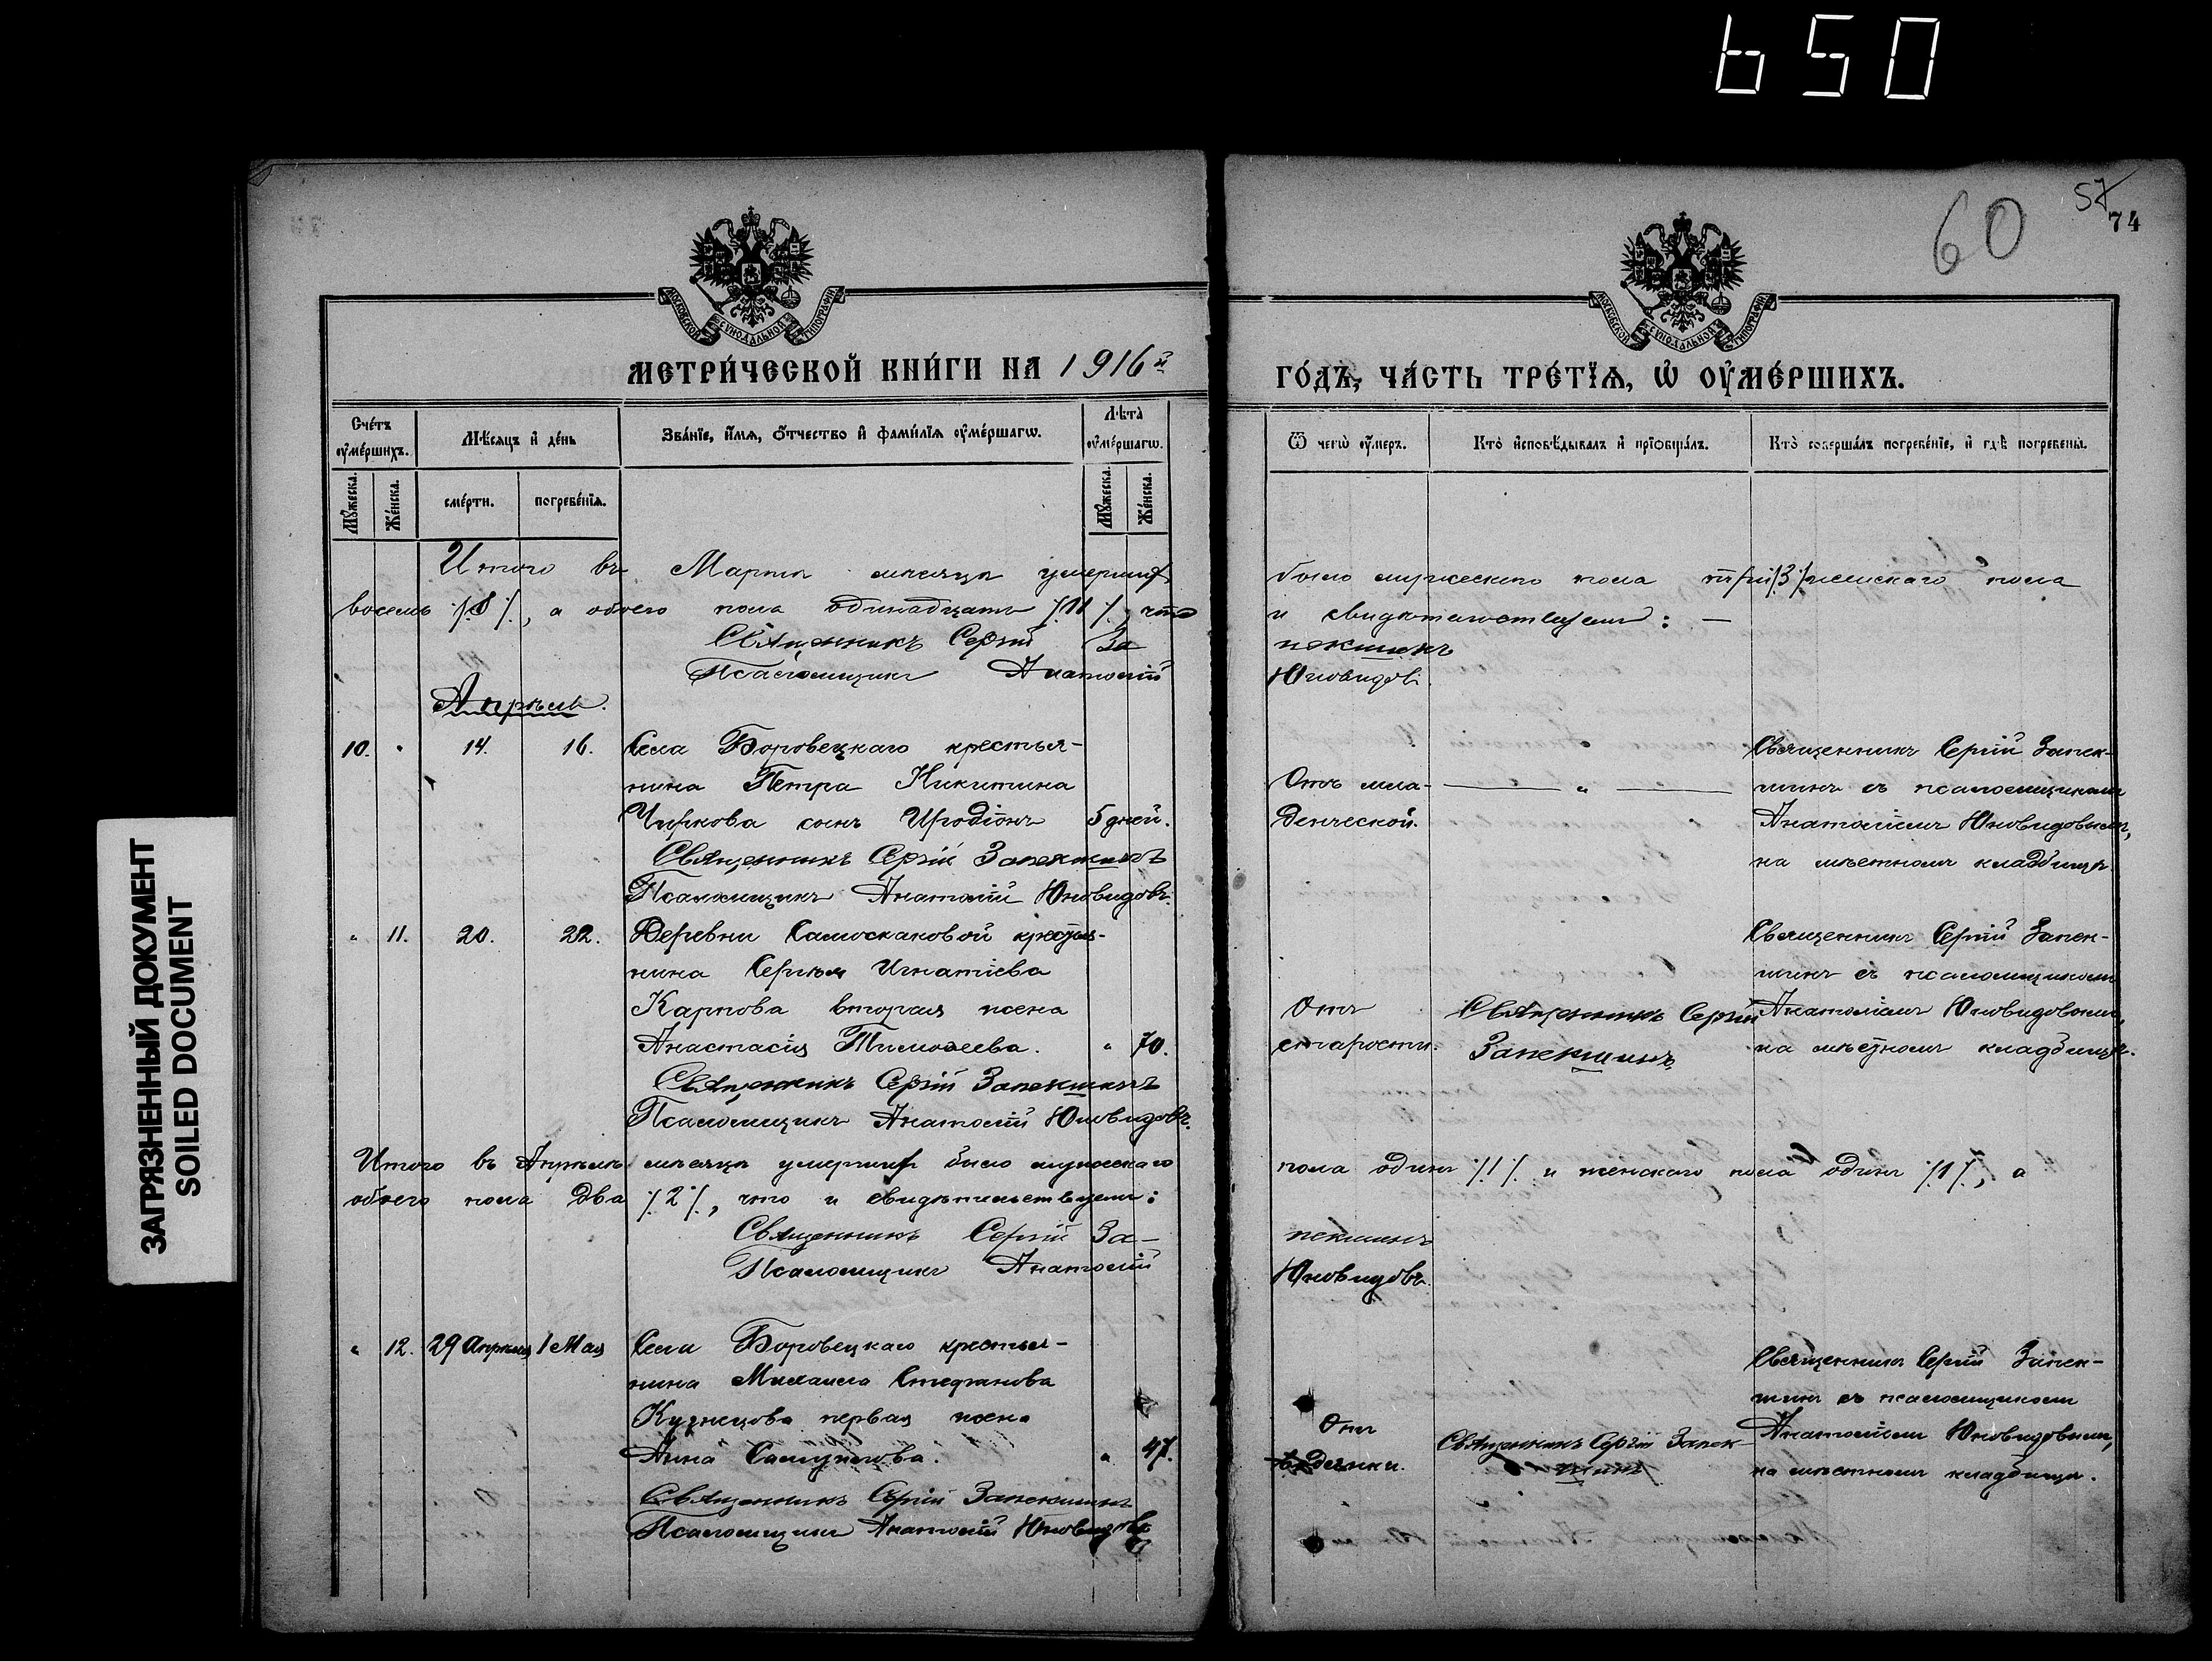 650
ЗАГРЯЗНЕННЫЙ ДОКУМЕНТ
SOILED DOCUMENT
60
57
74
МОСКОВСКОЙ СѴНОДАЛЬНОЙ ТИПОГРАФІИ
МОСКОВСКОЙ СѴНОДАЛЬНОЙ ТИПОГРАФІИ
МЕТРИ́ЧЕСКОЙ КНИ́ГИ НА 1916й ГО́ДЪ, ЧА́СТЬ ТРЕ́ТЇѦ, Ѡ҆ ОУ҆МЕ́РШИХЪ.
Сче́тъ оу҆ме́ршихъ.
Мѣ́сяцъ и҆ де́нь
Зва́нїе, и҆́мѧ, ѻ҆́тчество и҆ фами́лїѧ оу҆ме́ршагѡ.
Лѣ́та оу҆ме́ршагѡ.
Ѿ чегѡ̀ оу҆́меръ.
Кто̀ и҆сповѣ́дывалъ и҆ прїѡбща́лъ.
Кто̀ соверша́лъ погребе́нїе, и҆ гдѣ̀ погребены̀.
Мꙋ́жеска. Же́нска. сме́рти. погребе́нїѧ. Мꙋ́жеска. Же́нска.
Итого въ Мартѣ мѣсяцѣ умершихъ было мужескаго пола три /3/ женскаго пола
восемь /8/, а обоего пола одинадцать /11/, что и свидѣтельствуемъ: —
Священникъ Сергій Запекшинъ
Псаломщикъ Анатолій Юновидовъ.
Апрѣль.
10. " 14. 16. Села Боровецкаго крестья-
нина Петра Никитина
Чиркова сынъ Иродіонъ 5 дней.
Отъ мла-
денческой.
"
Священникъ Сергій Запек-
шинъ съ псаломщикомъ
Анатоліемъ Юновидовымъ,
на мѣстномъ кладбищѣ
Священникъ Сергій Запекшинъ
Псаломщикъ Анатолій Юновидовъ.
" 11. 20. 22. Деревни Самоскаковой крестья-
нина Сергѣя Игнатіева
Карпова вторая жена
Анастасія Тимоѳеева. " 70.
Отъ
старости.
Священникъ Сергій
Запекшинъ
Священникъ Сергій Запек-
шинъ съ псаломщикомъ
Анатоліемъ Юновидовымъ,
на мѣстномъ кладбищѣ.
Священникъ Сергій Запекшинъ
Псаломщикъ Анатолій Юновидовъ.
Итого въ Апрѣлѣ мѣсяцѣ умершихъ было мужескаго пола одинъ /1/ и женскаго пола одинъ /1/, а
обоего пола два /2/, что и свидѣтельствуемъ:
Священникъ Сергій За-пекшинъ
Псаломщикъ Анатолій Юновидовъ.
" 12. 29 Апрѣля 1 Мая Села Боровецкаго крестья-
нина Михаила Стефанова
Кузнецова первая жена
Анна Самуилова. " 47.
Отъ
водянки.
Священникъ Сергій Запек-
шинъ
Священникъ Сергій Запек-
шинъ съ псаломщикомъ
Анатоліемъ Юновидовымъ,
на мѣстномъ кладбищѣ.
Священникъ Сергій Запекшинъ
Псаломщикъ Анатолій Юновидовъ